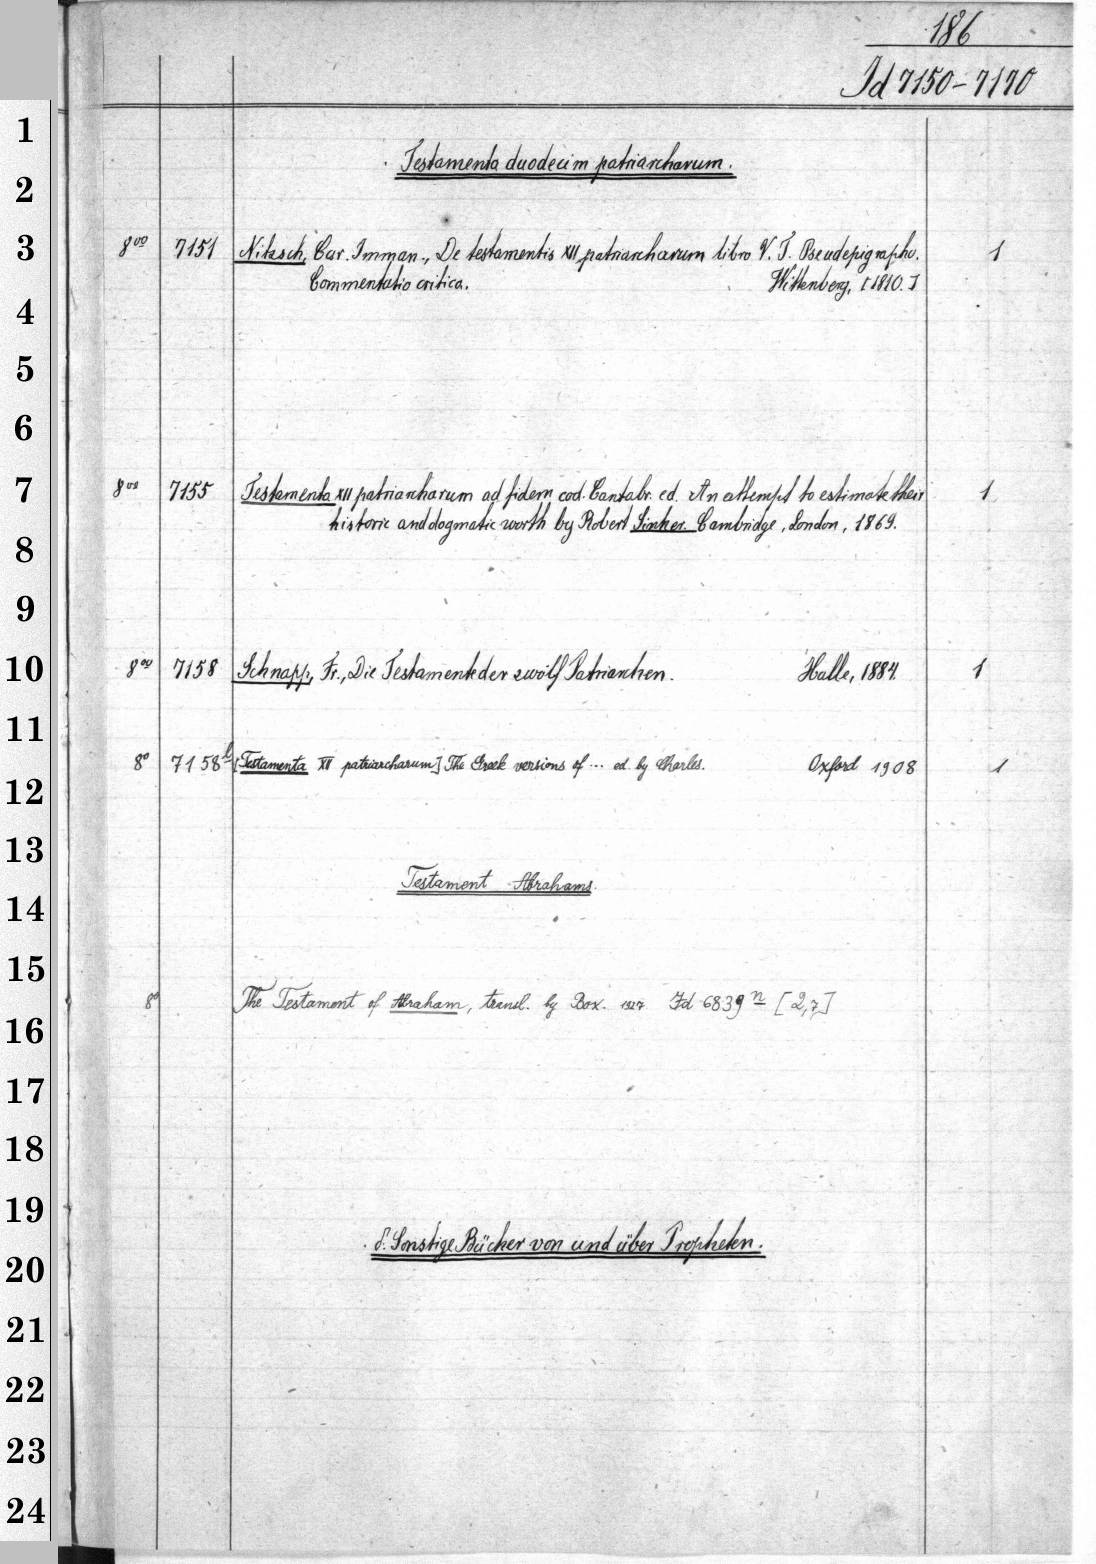 186
Id 7150-7170
1
Testamenta duodecim patriarcharum.
2
3 8vo 7151 Nitzsch, Car. Imman., De testamentis XII patriarcharum libro V. T. Pseudepigrapho. 1
Commentatio critica. Wittenberg, [1810.]
4
5
6
7 8vo 7155 Testamenta XII patriarcharum ad fidem cod. Cantabr. ed. An attempt to estimate their 1
historic and dogmatic worth by Robert Sinker. Cambridge, London, 1869.
8
9
10 8vo 7158 Schnapp, Fr., Die Testamente der zwölf Patriarchen. Halle, 1884. 1
11
8° 7158b [Testamenta XII patriarcharum] The Greek versions of ... ed. by Charles. Oxford 1908 1
12
13
Testament Abrahams.
14
15
8° The Testament of Abraham, transl. by Box. 1927 Id 6839n [2,7]
16
17
18
19
δ. Sonstige Bücher von und über Propheten.
20
21
22
23
24